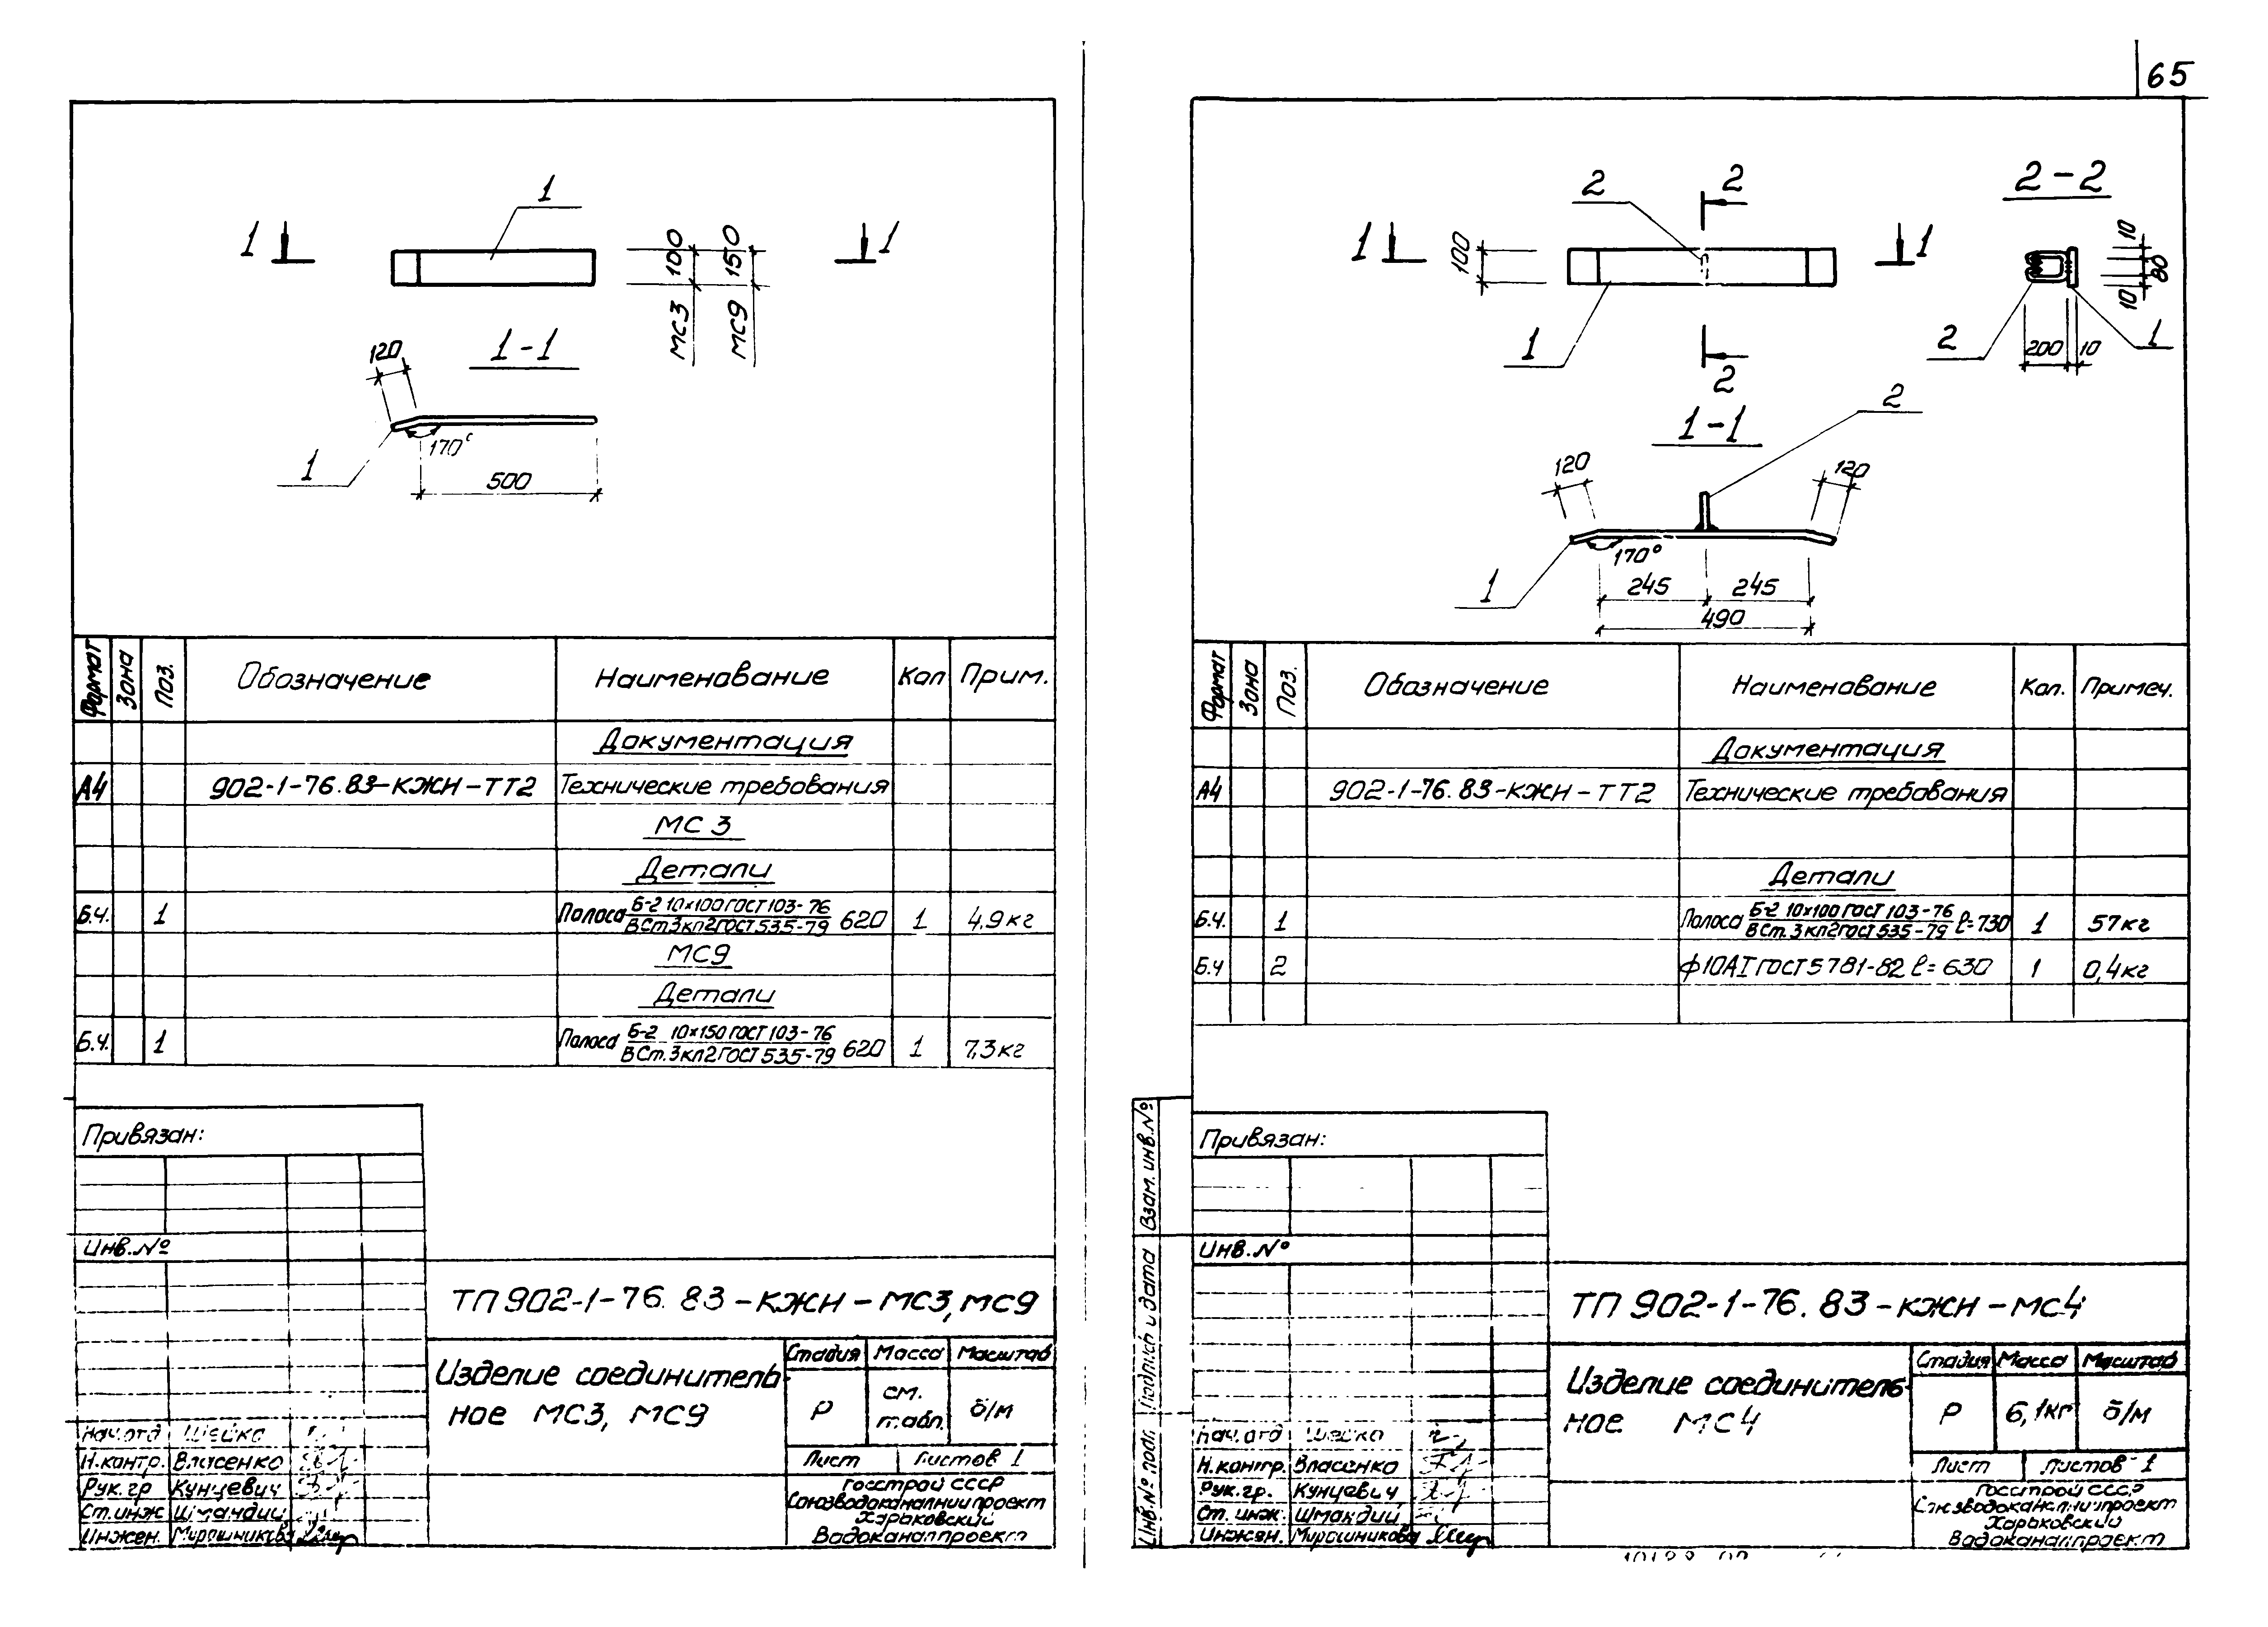 65
1
1
1
100
150
МС3
МС9
1-1
120
170°
1
500
Формат Зона Поз. Обозначение Наименование Кол Прим.
Документация
А4 902-1-76.83-КЖИ-ТТ2 Технические требования
МС 3
Детали
Б.ч. 1 Полоса Б-2 10×100 ГОСТ 103-76 / ВСт.3кп2 ГОСТ 535-79 620 1 4,9 кг
МС9
Детали
Б.ч. 1 Полоса Б-2 10×150 ГОСТ 103-76 / ВСт.3кп2 ГОСТ 535-79 620 1 7,3 кг
Привязан:
Инв.№
ТП 902-1-76.83-КЖИ-МС3, МС9
Изделие соединитель-
ное МС3, МС9
Стадия Масса Масштаб
Р см. табл. б/м
Лист Листов 1
Госстрой СССР
Союзводоканалниипроект
Харьковский
Водоканалпроект
Нач.отд Шейко
Н.контр. Власенко
Рук.гр Кунцевич
Ст.инж Шмандий
Инжен. Мирошникова
2
2
2-2
1
1
100
1
2
10
80
10
2
200
10
1
1-1
2
120
120
170°
1
245
245
490
Формат Зона Поз. Обозначение Наименование Кол. Примеч.
Документация
А4 902-1-76.83-КЖИ-ТТ2 Технические требования
Детали
Б.ч. 1 Полоса Б-2 10×100 ГОСТ 103-76 / ВСт.3кп2 ГОСТ 535-79 ℓ=730 1 57 кг
Б.ч 2 ф10АI ГОСТ 5781-82 ℓ=630 1 0,4 кг
Взам. инв.№
Подпись и дата
Инв.№ подл.
Привязан:
Инв.№
ТП 902-1-76.83-КЖИ-МС4
Изделие соединитель-
ное МС4
Стадия Масса Масштаб
Р 6,1кг б/м
Лист Листов 1
Госстрой СССР
Союзводоканалниипроект
Харьковский
Водоканалпроект
Нач.отд Шейко
Н.контр. Власенко
Рук.гр. Кунцевич
Ст. инж. Шмандий
Инжен. Мирошникова